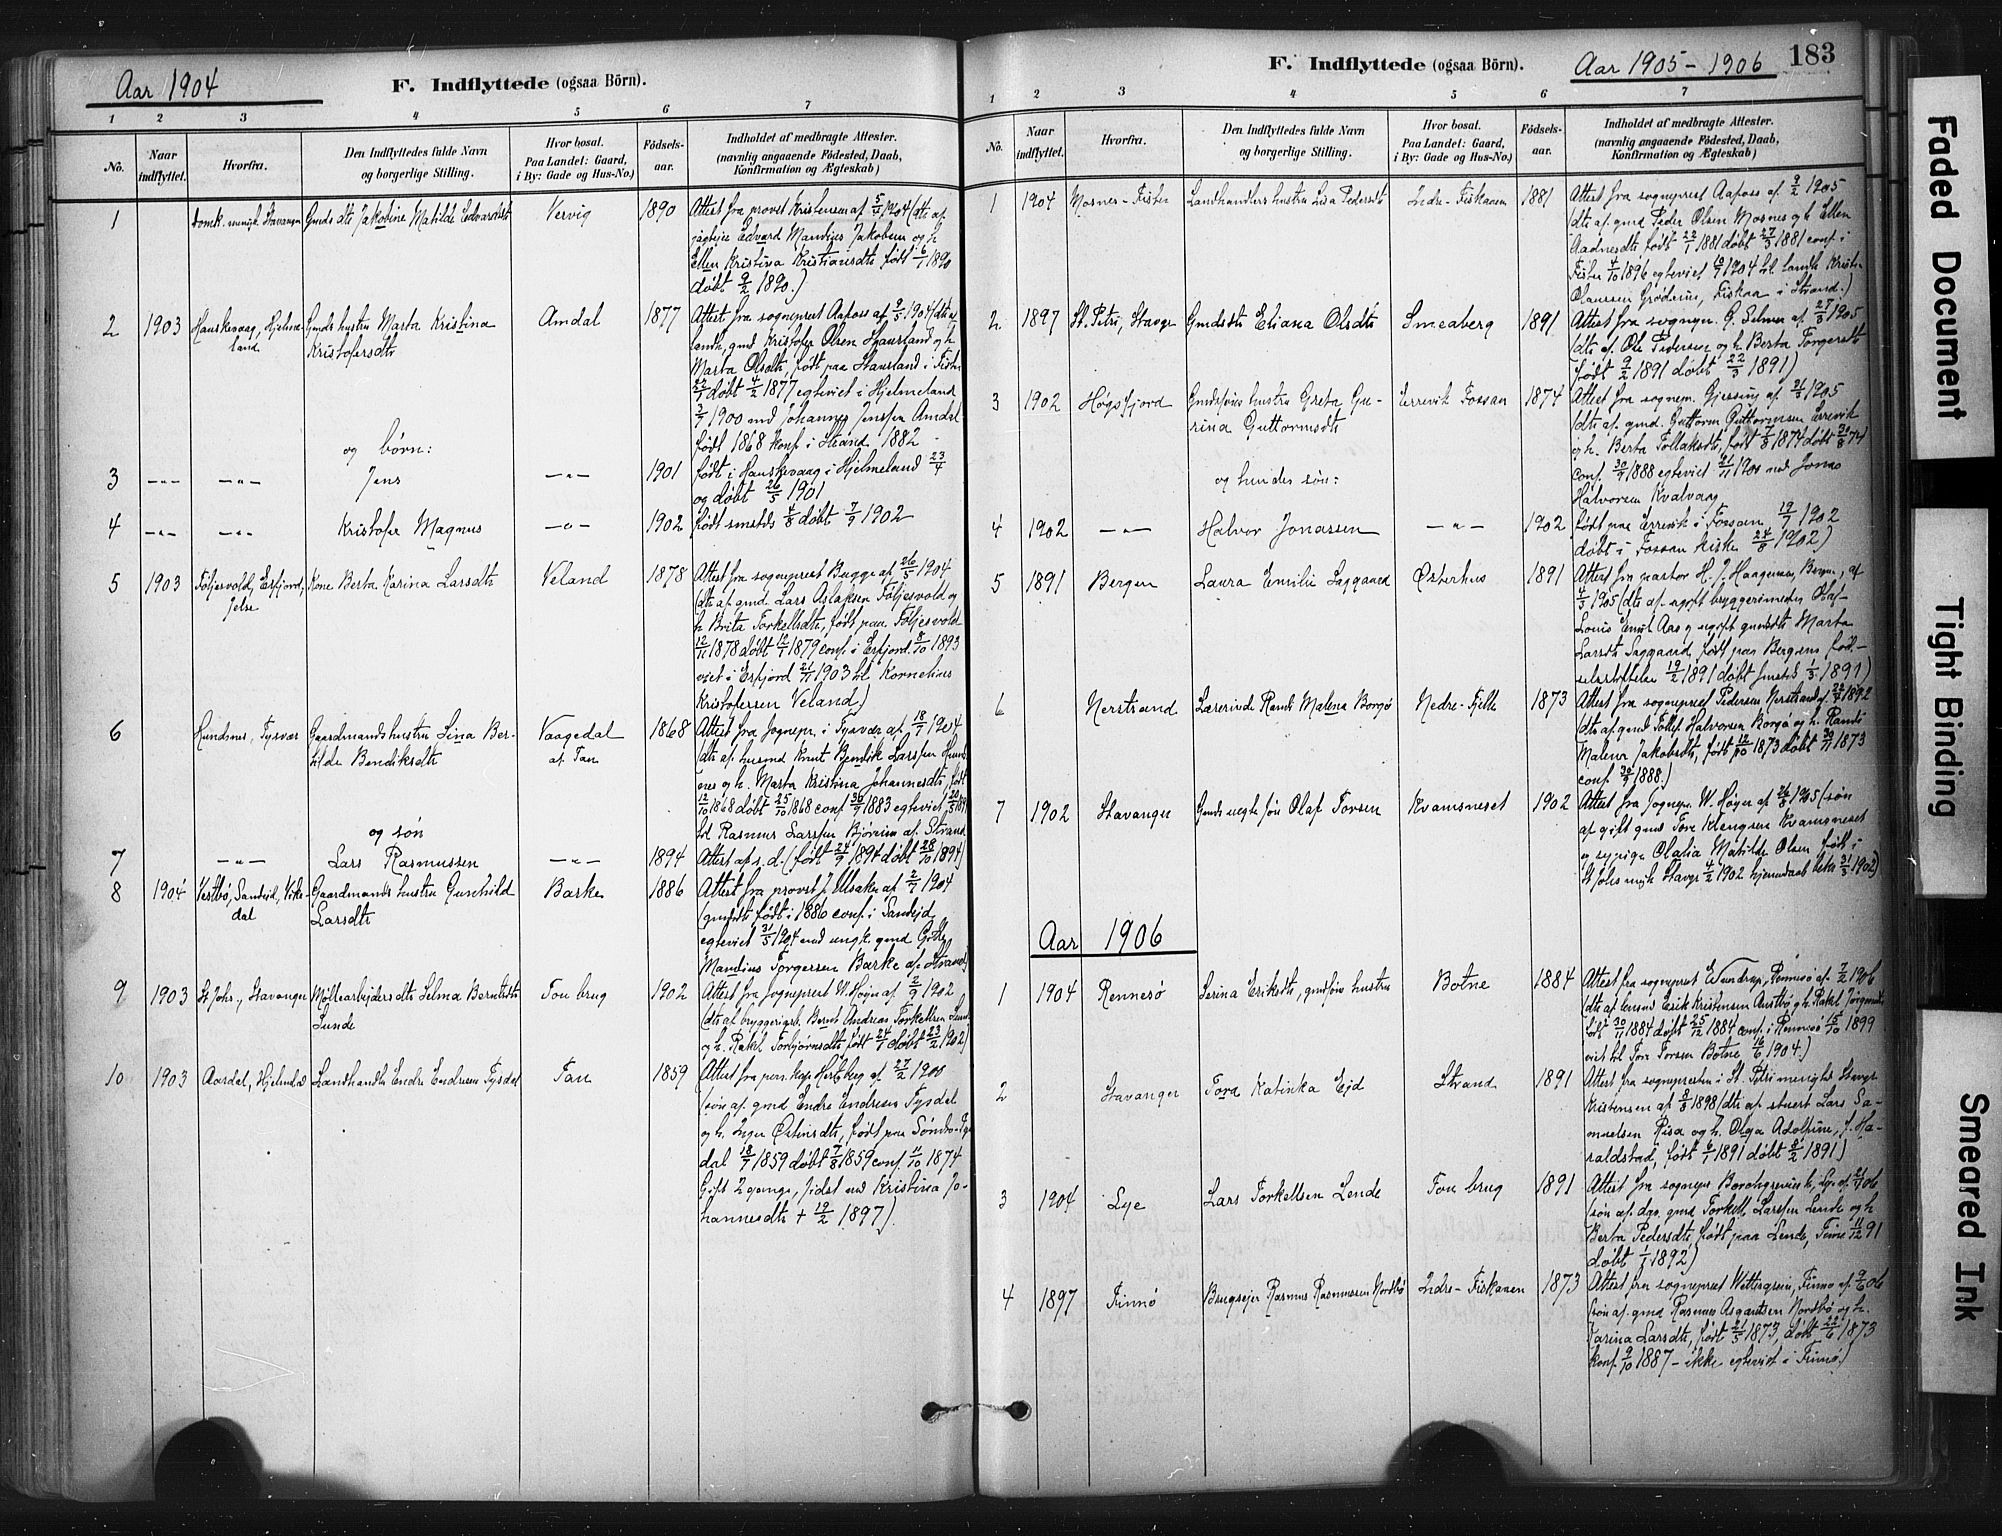 Aar 1904
F. Indflyttede (ogsaa Börn).
1 2 3 4 5 6 7
No.
Naar indflyttet.
Hvorfra.
Den Indflyttedes fulde Navn
og borgerlige Stilling.
Hvor bosat.
Paa Landet: Gaard,
i By: Gade og Hus-No.)
Födsels-
aar.
Indholdet af medbragte Attester.
(navnlig angaaende Födested, Daab,
Konfirmation og Ægteskab)
1 Domk. menigh Stavanger Gmds dtr Jakobine Matilde Edvardsdtr Vervig 1890 Attest fra provst Kristensen af 5/4 1904 (dtr af
Edvard Mandius Jakobsen og h
Ellen Kristina Kristiansdtr født 6/1 1890
døbt 9/2 1890.)
2 1903 Hauskevaag, Hjelme- Gmds hustru Marta Kristina Amdal 1877 Attest fra sogneprest Aafoss af 9/5 1904 (dtr af
land Kristofersdtr landh, gmd Kristofer Olsen Staursland og h
Marta Olsdtr, født paa Staursland i Fister
22/1 døbt 4/2 1877 egteviet i Hjelmeland
3/7 1900 med Johannes Jensen Amdal
født 1868 konf. i Strand 1882 -
og børn:
3 -"- -"- Jens -"- 1901 født i Hauskevaag i Hjelmeland 23/4
og døbt 26/5 1901
4 -"- -"- Kristofer Magnus -"- 1902 født smstds 4/8 døbt 7/9 1902
5 1903 Føljesvold, Erfjord, Kone Berta Karina Larsdtr Veland 1878 Attest fra sogneprest Bugge af 26/5 1904
Jelse (dtr af gmd Lars Aslaksen Føljesvold og
h Brita Torkellsdtr, født paa Føljesvold
12/11 1878 døbt 12/1 1879 conf. i Erfjord 8/10 1893
viet i Erfjord 21/11 1903 til Kornelius
Kristofersen Veland)
6 Hundsnes, Tysvær Gaardmandshustru Lina Ber- Vaagedal 1868 Attest fra sognepr i Tysvær af 18/7 1904
tilde Bendiksdtr af Tau (dtr af husmd Knut Bendik Larssen Hunds
nes og h. Marta Kristina Johannesdtr, født
12/10 1868 døbt 25/10 1868 conf 30/9 1883 egteviet
til Rasmus Larssen Bjørheim af Strand
og søn
7 -"- Lars Rasmussen -"- 1894 Attest af s.d. (født 24/9 1894 døbt 28/10 1894)
8 1904 Vestbø, Sandeid, Vike- Gaardmands hustru Gunhild Barke 1886 Attest fra provst J. Ulsaker af 2/7 1904
dal Larsdtr (gmdsdtr født i 1886 conf. i Sandeid,
egteviet 31/5 1904 med ungk. gmd
Mandius Torgersen Barke af Strand)
9 1903 St Joh., Stavanger Møllearbejdersdtr Selma Berntsdtr Tou brug 1902 Attest fra sogneprest W. Høyer af 2/9 1902
Lunde (dtr af bryggeriarb. Bernt Andreas Torkellsen Lunde
og h. Rakel Torbjørnsdtr født 24/1 døbt 23/2 1902)
10 1903 Aardal, Hjelmeld Landhandler Endre Endresen Tysdal Tau 1859 Attest fra pers. kap. Hertzberg af 27/2 1900
(søn af gmd Endre Endresen Tysdal
og h. Inger Østensdtr, født paa Søndre-Tys
dal 18/7 1859 døbt 7/8 1859 conf. 11/10 1874
Gift 2 gange, sidst med Kristina Jo-
hannesdtr + 19/2 1897).
F. Indflyttede (ogsaa Börn).
Aar 1905 - 1906
183
1 2 3 4 5 6 7
No.
Naar indflyttet.
Hvorfra.
Den Indflyttedes fulde Navn
og borgerlige Stilling.
Hvor bosat.
Paa Landet: Gaard,
i By: Gade og Hus-No.)
Födsels-
aar.
Indholdet af medbragte Attester.
(navnlig angaaende Födested, Daab,
Konfirmation og Ægteskab)
1 1904 Mosnes - Fister Landhandlers hustru Lisa Pedersdtr Indre - Fiskaaen 1881 Attest fra sogneprest Aafoss af 9/2 1905
(dtr af gmd Peder Olsen Mosnes og h. Ellen
Aadnesdtr født 22/1 1881 døbt 27/3 1881 conf. i
Fister 4/10 1896 egteviet 1904 til landh. Kristen
Olaussen Grøderus, Fiskaa i Strand.)
2 1897 St. Petri, Stavgr Gmdsdtr Eliana Olsdtr Smedberg 1891 Attest fra sognepr. G. Selmer af 27/3 1905
(dtr af Ole Pedersen og h. Berta Torgersdtr
født 9/2 1891 døbt 22/3 1891)
3 1902 Høgsfjord Gmdsføls hustru Greta Gu- Errevik Fossan 1874 Attest fra sognepr. Gjessing af 26/3 1905
rina Guttormsdtr (dtr af gmd. Guttorm Guttormsen Errevik
og h. Berta Tollaksdtr, født 7/8 1874 døbt 30/8 74
conf. 30/9 1888 egteviet 1900 med Jonas
Halvorsen Kvalvaag
og hendes søn:
4 1902 -"- Halvor Jonassen -"- 1902 født paa Errevik i Fossan 19/7 1902
døbt i Fossan kirke 24/8 1902)
5 1891 Bergen Laura Emilie Saggaard Østerhus 1891 Attest fra pastor H. J. Haagensen, Bergen, af
4/3 1905 (dtr af ugift byggersmedm Olaf
Louis Emil Aas og ugift gmdsdtr Marta
Larsdtr Saggaard, født paa Bergens fød-
selsstiftelse 19/2 1891 døbt smsteds 1/3 1891)
6 Nerstrand Lærerinde Randi Malena Borgø Nedre - Fjelde 1873 Attest fra sogneprest Pedersen Nerstrand af 1892
(dtr af gmd Tollef Halvorsen Borgø og h. Randi
Malena Jakobsdtr, født 12/10 1873 døbt 30/11 1873
conf. 30/9 1888.)
7 1902 Stavanger Gmds uegte søn Olaf Torsen Kvamsneset 1902 Attest fra sognepr. W. Høyer af 26/3 1905 (søn
af gift gmd Tore Klengsen Kvamsneset
og sypige Olalia Matilde Olsen født i
St Johs mgh Stavgr 4/2 1902 hjemmedaab bekr 31/3 1902)
Aar 1906
1 1904 Rennesø Serina Eriksdtr, gmdsøns hustru Botne 1884 Attest fra sogneprest Evandrup, Rennesø af 7/2 1906
(dtr af Erik Kristensen Austbø og h. Rakel Jørgensdtr
født 30/11 1884 døbt 25/12 1884 conf. i Rennesø 15/10 1899
viet til Tore Torsen Botne 16/6 1904.)
2 Stavanger Tora Katinka Ejd Strand 1891 Attest fra sognepresten i St. Petri menighed Stavgr
Kristensen af 8/8 1898 (dtr af stuert Lars Sa-
muelsen Risa og h. Olga Adolfine, f. Ha-
raldstad, født 6/1 1891 døbt 8/2 1891)
3 1904 Lye Lars Torkellsen Lende Tou brug 1891 Attest fra sognepr Borchgrevink, Lye af 06
(søn af dgs. gmd Torkell Larssen Lende og h
Berta Pedersdtr, født paa Lende, Time 11/12 91
døbt 1/1 1892)
4 1897 Finnø Brugsejer Rasmus Rasmussen Nordbø Indre - Fiskaaen 1873 Attest fra sogneprest Wettergreen, Finnø af 06
(søn af gmd Rasmus Asgautsen Nordbø og h.
Karina Larsdtr, født 21/5 1873, døbt 22/6 1873
konf. 9/10 1887 - ikke egteviet i Finnø.)
Faded Document
Tight Binding
Smeared Ink